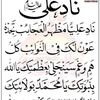 ناد علی
نَادِ عَلِيًّا مَظْهَرَ الْعَجَائِبِ تَجِدْهُ
عَوْنًا لَكَ فِي النَّوَائِبِ كُلُّ
هَمٍّ وَغَمٍّ سَيَنْجَلِي بِعَظَمَتِكَ يَا اللهُ
بِنُبُوَّتِكَ يَا مُحَمَّدُ بِوَلَايَتِكَ